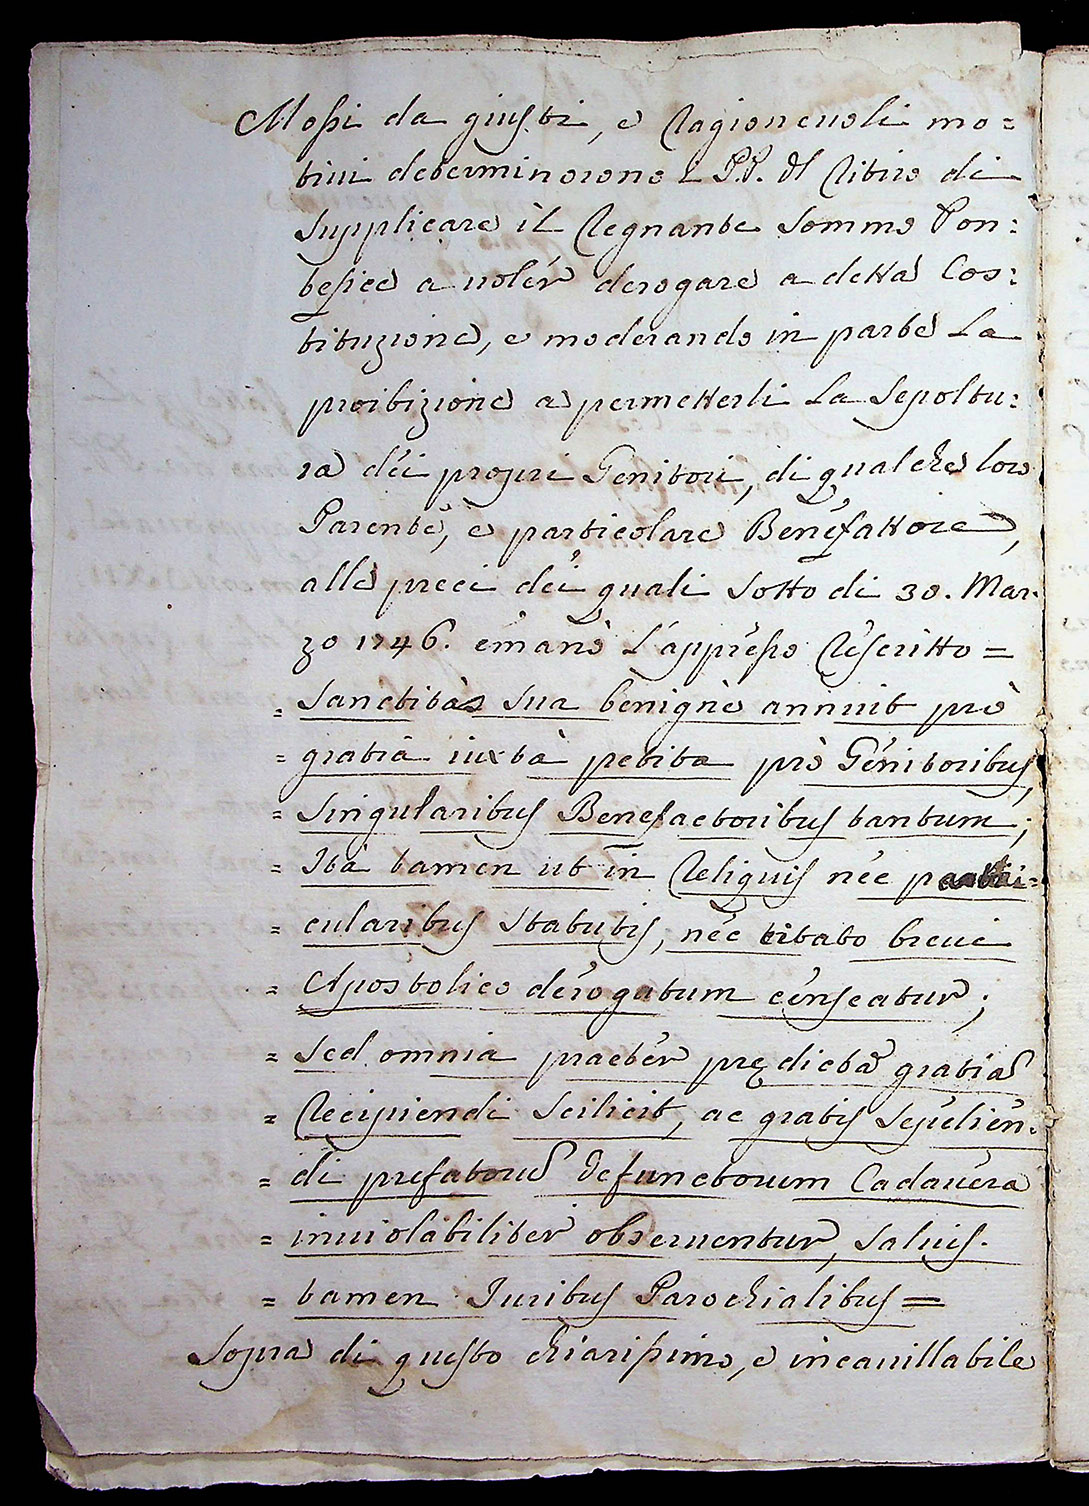 Mossi da giusti, e ragionevoli mo=
tivi determinorono i P.P. dl Ritiro di
supplicare il Regnante Sommo Pon:
tefice a volér derogare a detta Cos:
tituzione, e moderando in parte la
proibizione a permetterli la sepoltu:
ra déi proprj Genitori, di qualche loro
Parenté, e particolare Benéfattore,
alle preci déi quali sotto di 30. Mar:
zo 1746. émanò l'appresso Réscritto =
= Sanctitàs sua benignè annuit prò
= gratia iuxtà petita prò Génitoribus,
= Singularibus Benefactoribus tantum;
= Ità tamen ut in Reliquis néc parti=
= cularibus Statutis, néc citato brevi
= Apostolico dérogatum cénseatur;
= Sed omnia praetér prędicta gratia
= Recipiendi scilicit, ac gratis sepélién:
= di prefatorum defunctorum Cadavéra
= inviolabiliter observentur, salvis.
= tamen Juribus Parochialibus =
Sopra di questo chiarissimo, e incavillabile